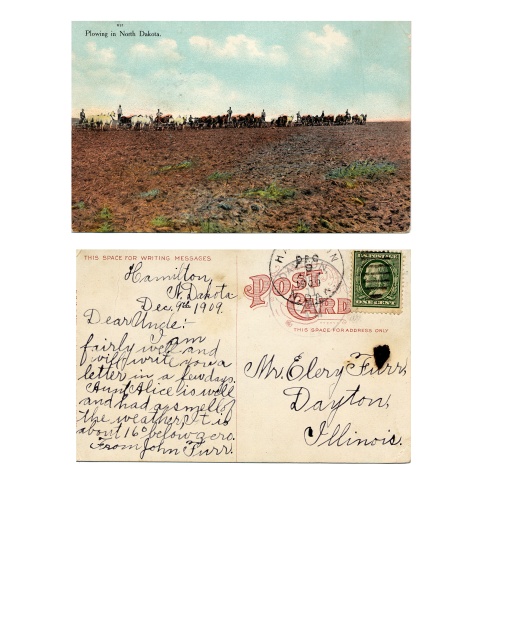 Plowing in North Dakota.
THIS SPACE FOR WRITING MESSAGES
Hamilton,
N. Dakota
Dec. 9th 1909.
Dear Uncle:-
I am
fairly well and
will write you a
letter in a few days.
Aunt Alice is well
and had a smell of
the weather, It is
about 16° below zero.
From John Furr.
POST CARD
THIS SPACE FOR ADDRESS ONLY
DEC
9
U.S. POSTAGE
ONE CENT
Mr. Elery Furr
Dayton,
Illinois.